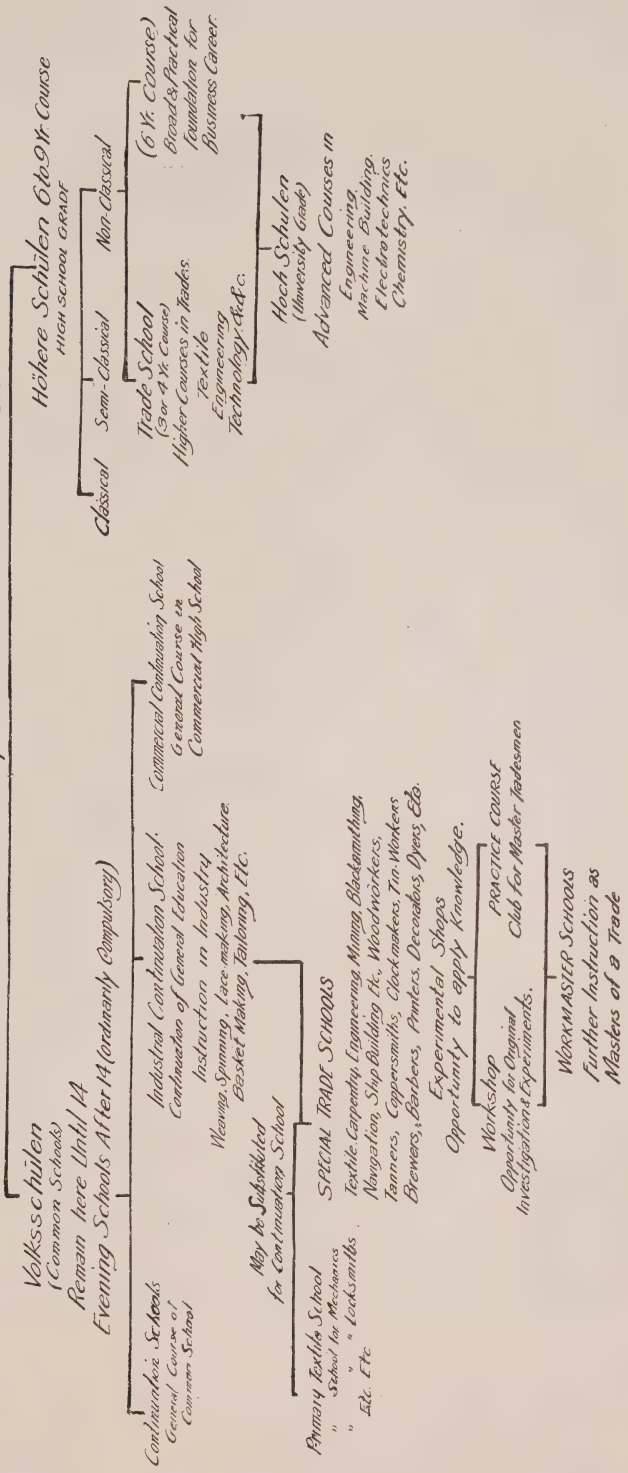 Volksschülen
(Common Schools)
Remain here Until 14
Evening Schools After 14 (ordinarily Compulsory)
Continuation Schools
General Course of
Common School
Industrial Continuation School.
Continuation of General Education
Instruction in Industry
Weaving, Spinning, Lace-making, Architecture.
Basket Making, Tailoring, Etc.
Commercial Continuation School
General Course in
Commercial High School
May be Substituted
for Continuation School
Primary Textile School
" School for Mechanics
" " " Locksmiths
Etc. Etc
SPECIAL TRADE SCHOOLS
Textile, Carpentry, Engineering, Mining, Blacksmithing,
Navigation, Ship Building Etc., Woodworkers,
Tanners, Coppersmiths, Clockmakers, Tin-Workers
Brewers, Barbers, Printers, Decorators, Dyers, Etc.
Experimental Shops
Opportunity to apply Knowledge.
Workshop
Opportunity for Original
Investigation & Experiments.
PRACTICE COURSE
Club For Master Tradesmen
WORKMASTER SCHOOLS
Further Instruction as
Masters of a Trade
Höhere Schülen 6 to 9 Yr. Course
HIGH SCHOOL GRADE
Classical Semi-Classical Non-Classical
Trade School
(3 or 4 Yr. Course)
Higher Courses in Trades.
Textile
Engineering
Technology. &c&c.
(6 Yr. Course)
Broad & Practical
foundation for
Business Career.
Hoch Schulen
(University Grade)
Advanced Courses in
Engineering.
Machine Building.
Electrotechnics
Chemistry. Etc.